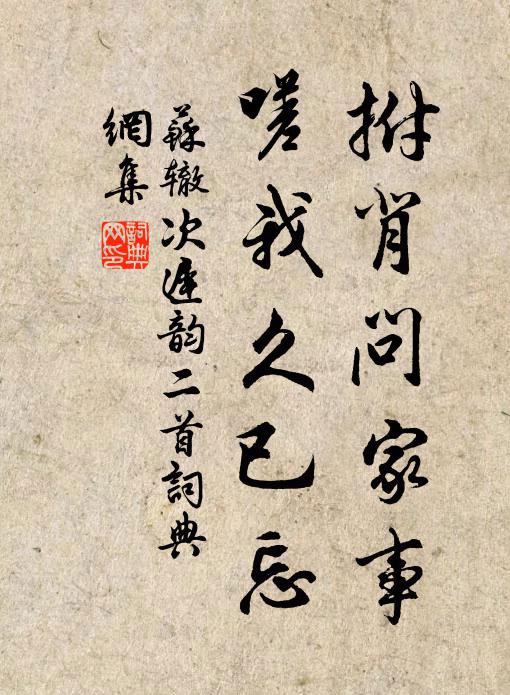 拊背問家事
嗟我久已忘
蘇辙次遲韵二首詞典
網集
詞典
网印